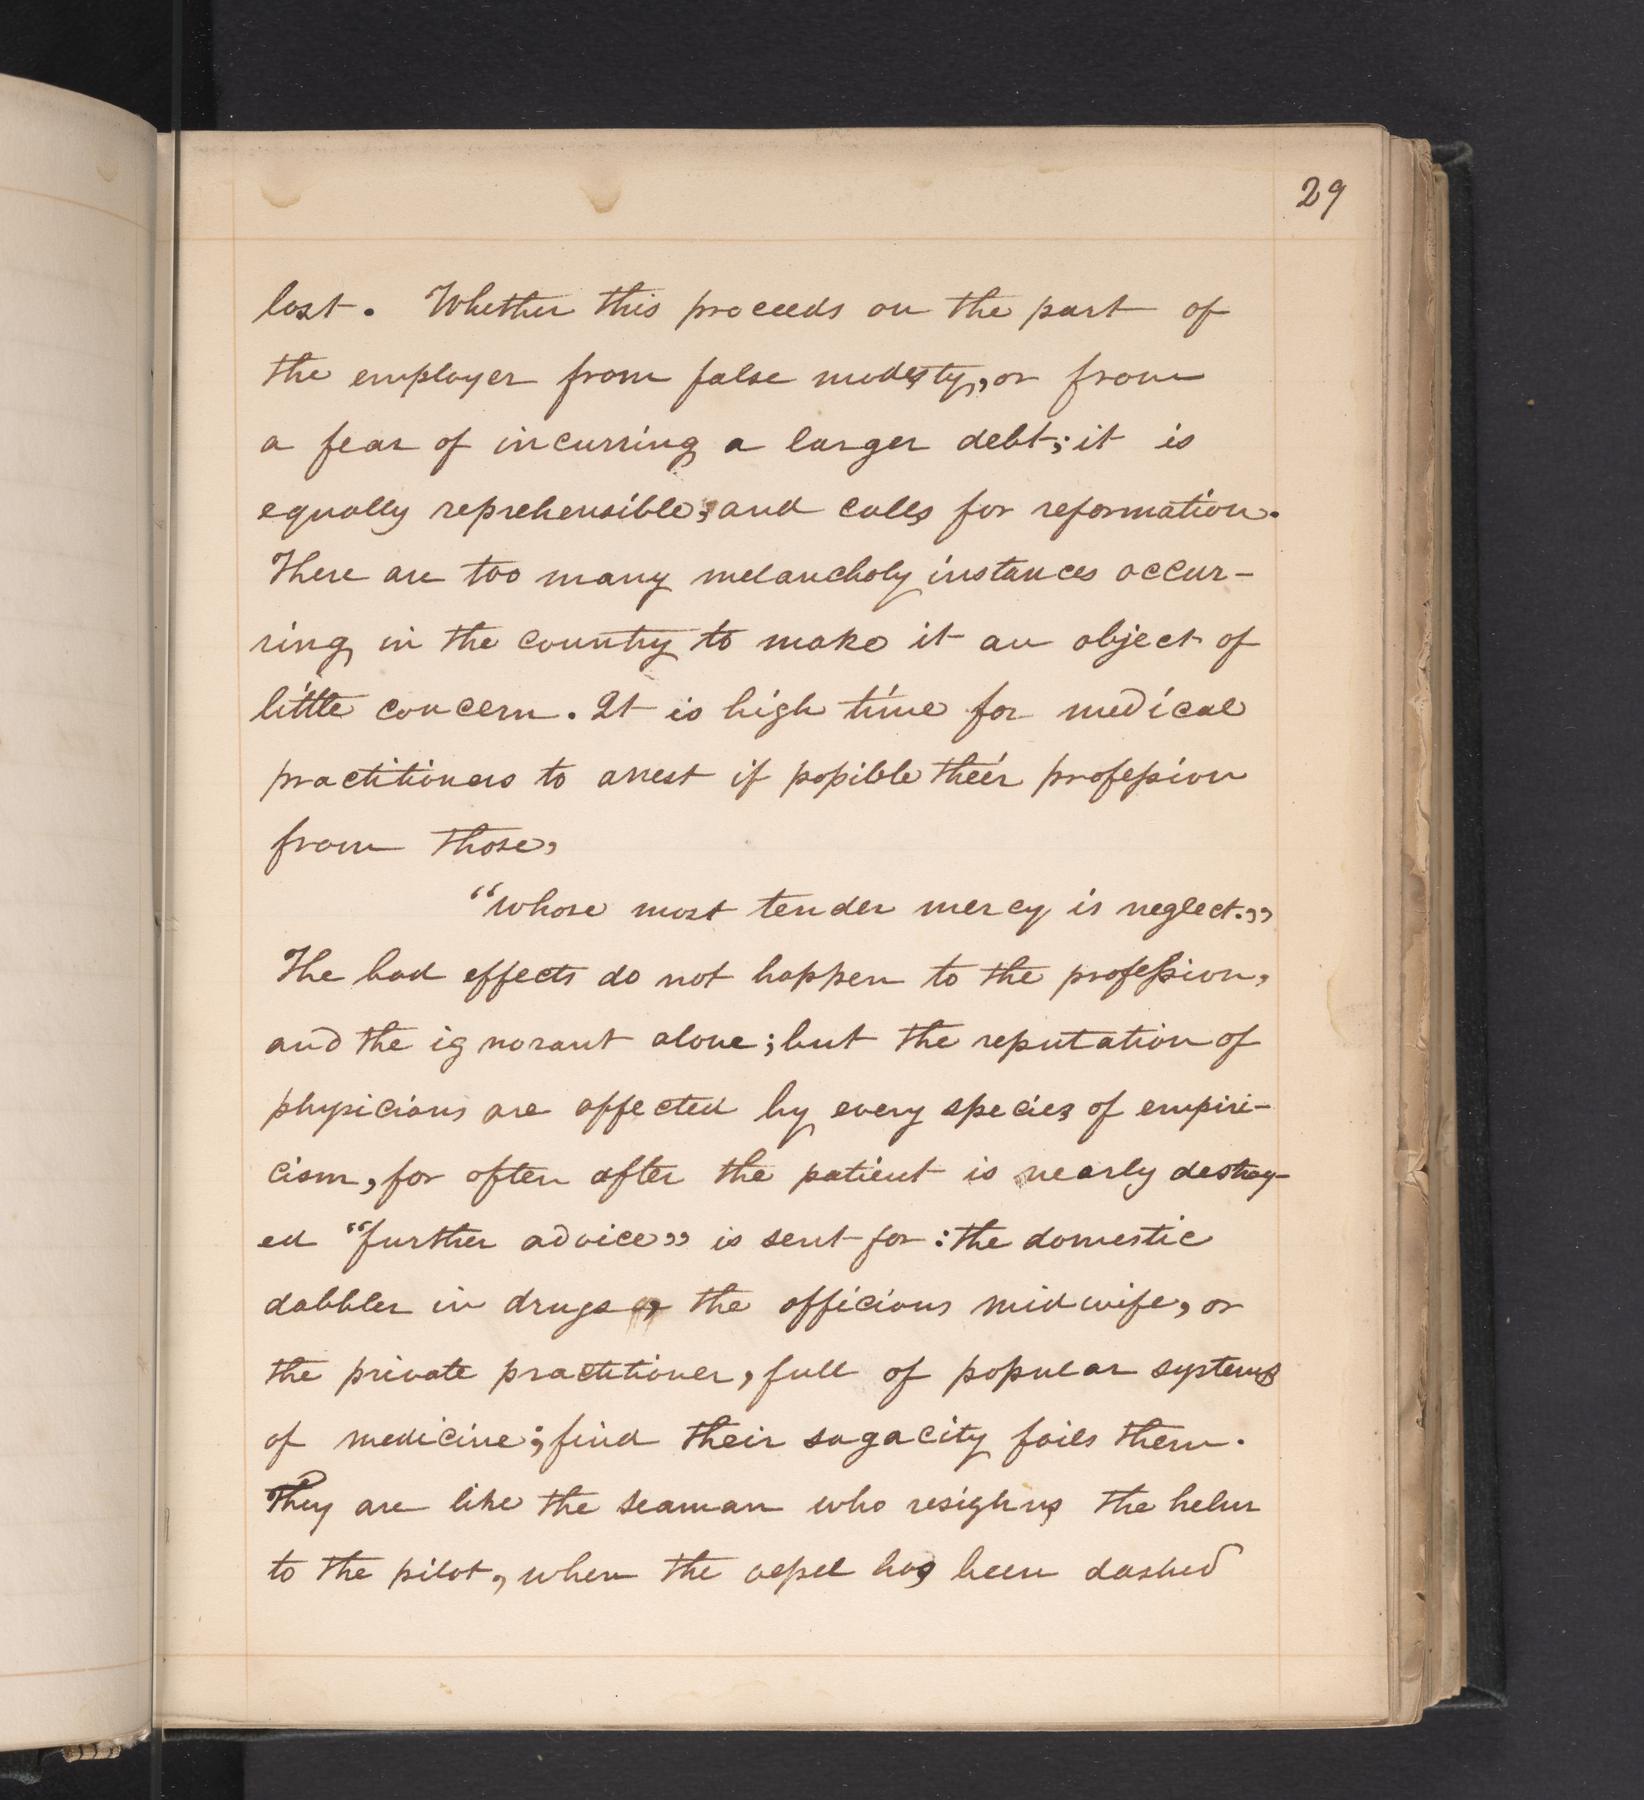 29
lost. Whether this proceeds on the part of
the employer from false modesty, or from
a fear of incurring a larger debt; it is
equally reprehensible, and calls for reformation.
There are too many melancholy instances occur-
ring in the country to make it an object of
little concern. It is high time for medical
practitioners to arrest if poſsible their profeſsion
from those,
"whose most tender mercy is neglect."
The bad effects do not happen to the profeſsion,
and the ignorant alone; but the reputation of
physicians are affected by every species of empiri-
cism, for often after the patient is nearly destroy-
ed "further advice" is sent for: the domestic
dabbler in drugs, the officious midwife, or
the private practitioner, full of popular systems
of medicine; find their sagacity fails them.
They are like the seaman who resighns the helm
to the pilot, when the veſsel has been dashed